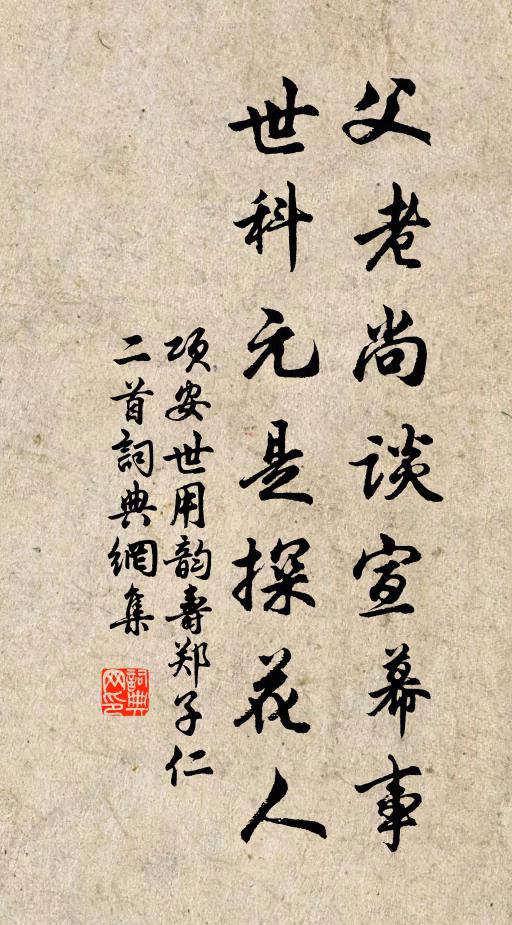 父老尚谈宣幕事
世科元是探花人
项安世用韵寿郑子仁
二首詞典網集
詞典网印